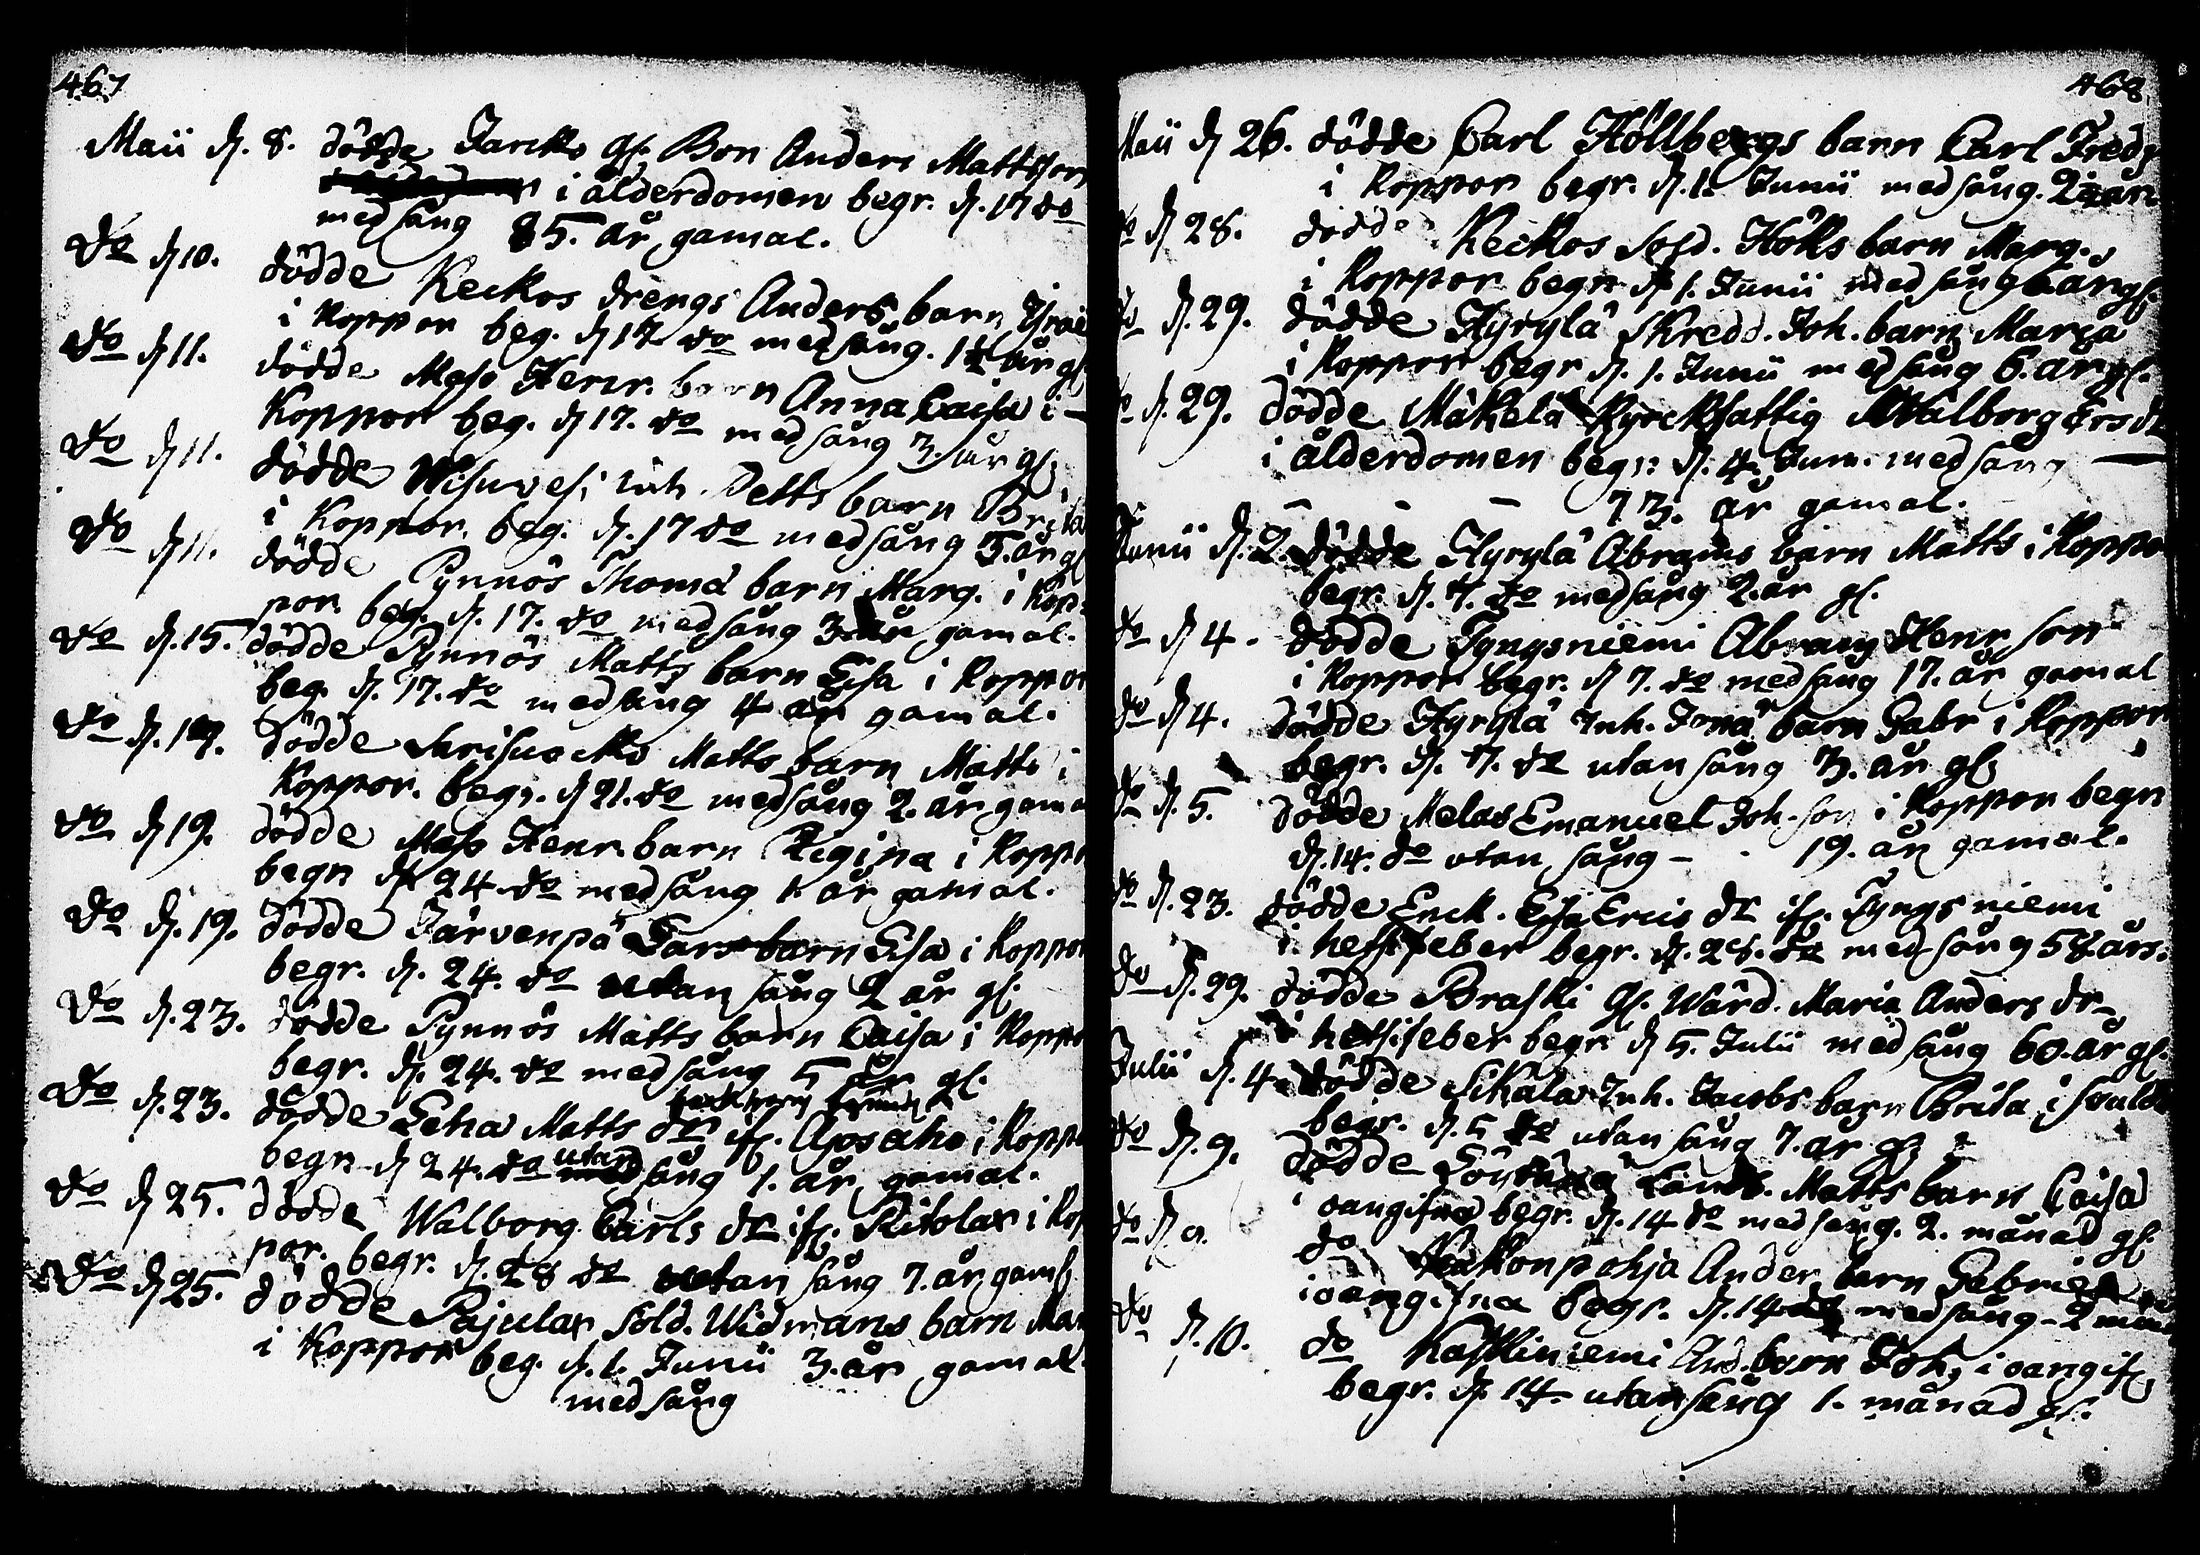 467
Maii d. 8. dödde Jarcko gl. Bon Anders Mattsson
i ålderdomen begr. d. 17 do
med sång 85. år gamal.
do d 10. dödde Keckos drengs Anders barn Israel
i Koppor beg. d 17 do med sång. 1½ år gl
do d 11. dödde Maso Henr. barn Anna Caisa i
Koppor beg. d 17. do med sång 3 år gl
do d 11. dödde Wesuvesi inh. Petts barn Brita
i Koppor. beg. d. 17 do med sång 5. år gl
do d 11. dödde Pynnös Thoma barn Marg. i Kop-
por. beg. d. 17. do med sång 3 år gamal.
do d. 15. dödde Pynnös Matts barn Lisa i Koppor
beg. d. 17. do med sång 4 år gamal.
do d. 19. dödde Sarisuocko Matts barn Matts i
Koppor. begr. d 21. do med sång 2. år gama
do d 19. dödde Maso Henr. barn Regina i Koppo
begr d 24. do med sång 1 år gamal.
do d. 19. dödde Järvenpä Lars barn Lisa i Koppor
begr. d. 24. do utan sång 2 år gl.
do d. 23. dödde Pynnös Matts barn Caisa i Koppo
begr. d. 24. do med sång 5 år gl.
do d. 23. dödde Lena Matts dr ifr. Aposaho i Koppo
begr d 24. do utan sång 1. år gamal.
do d 25. dödde Walborg Carls dr ifr. Ritolax i Kop
por. begr. d. 28 do utan sång 7. år gaml
do d 25. dödde Pajulax Sold. Widmans barn Mar
i Koppor beg. d. 1. Junii 3. år gamal.
med sång
468
Maii d 26. dödde Carl Höllbergs barn Carl Fredr
i Koppor begr. d. 1. Junii med sång. 2½ år
do d 28. dödde Keckos Sold. Höks barn Marg.
i Koppor begr d 1. Junii med sång 6 år gl.
do d. 29. dödde Hyrylä Skredd. Joh. barn Maria
i Koppor begr d. 1. Junii med sång 6. år gl.
do d. 29. dödde Mäkelä Kyrckfattig Walborg Ersdr
i ålderdomen begr: d. 4. Jun. med sång
73. år gamal.
Junii d. 2. dödde Hyrylä Abrams barn Matts i Koppo
begr. d. 7. do med sång 2. år gl.
do d 4. dödde Tyngsniemi Abram Henr son
i Koppor begr. d 7. do med sång 17. år gamal
do d 4. dödde Hyrylä Inh. Jona barn Gabr i Koppor
begr. d. 7. do utan sång 3. år gl
do d. 5. dödde Melas Emanuel Joh. son i Koppor begr
d. 14. do utan sång - 19. år gamal.
do d. 23. dödde Enck. Lisa Ercis dr ifr. Tyngsniemi
i hetsfeber begr. d. 28. do med sång 58. års.
do d. 29. dödde Braski gl. Wärd. Maria Anders dr
i hetsifeber begr d 5. Julii med sång 60. år gl.
Julii d. 4. dödde Sikala Inh. Jacobs barn Brita i svulst
begr. d. 5 do utan sång 7. år gl
do d. 9. dödde Matts barn Caisa
i oangifna begr. d. 14 do med sång. 2. månad gl
do d 9. do Kakonpohja Ander barn Gabriel
i oangifna begr. d. 14 do med sång - 2 mån
do d. 10. do Kaskiniemi And. barn Joh. i oangif
begr. d 14. utan sång 1. månad gl.